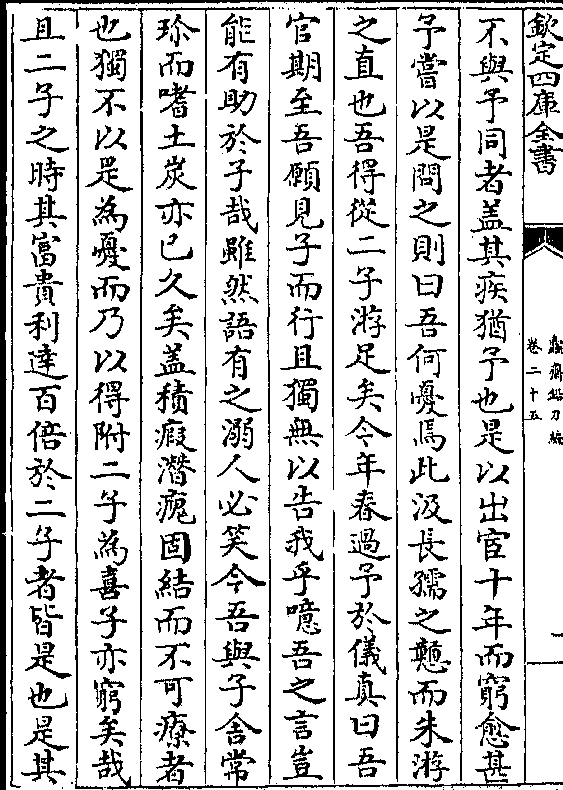 欽定四庫全書
蠹齋鉛刀編
卷二十五
一
不與予同者蓋其疾猶予也是以出宦十年而窮愈甚
予嘗以是問之則曰吾何憂焉此汲長孺之戇而朱游
之直也吾得從二子游足矣今年春過予於儀真曰吾
官期至吾願見子而行且獨無以告我乎噫吾之言豈
能有助於子哉雖然語有之溺人必笑今吾與子舍常
珍而嗜土炭亦已久矣蓋積瘕潛瘣固結而不可療者
也獨不以是為憂而乃以得附二子為喜子亦窮矣哉
且二子之時其富貴利達百倍於二子者皆是也是其